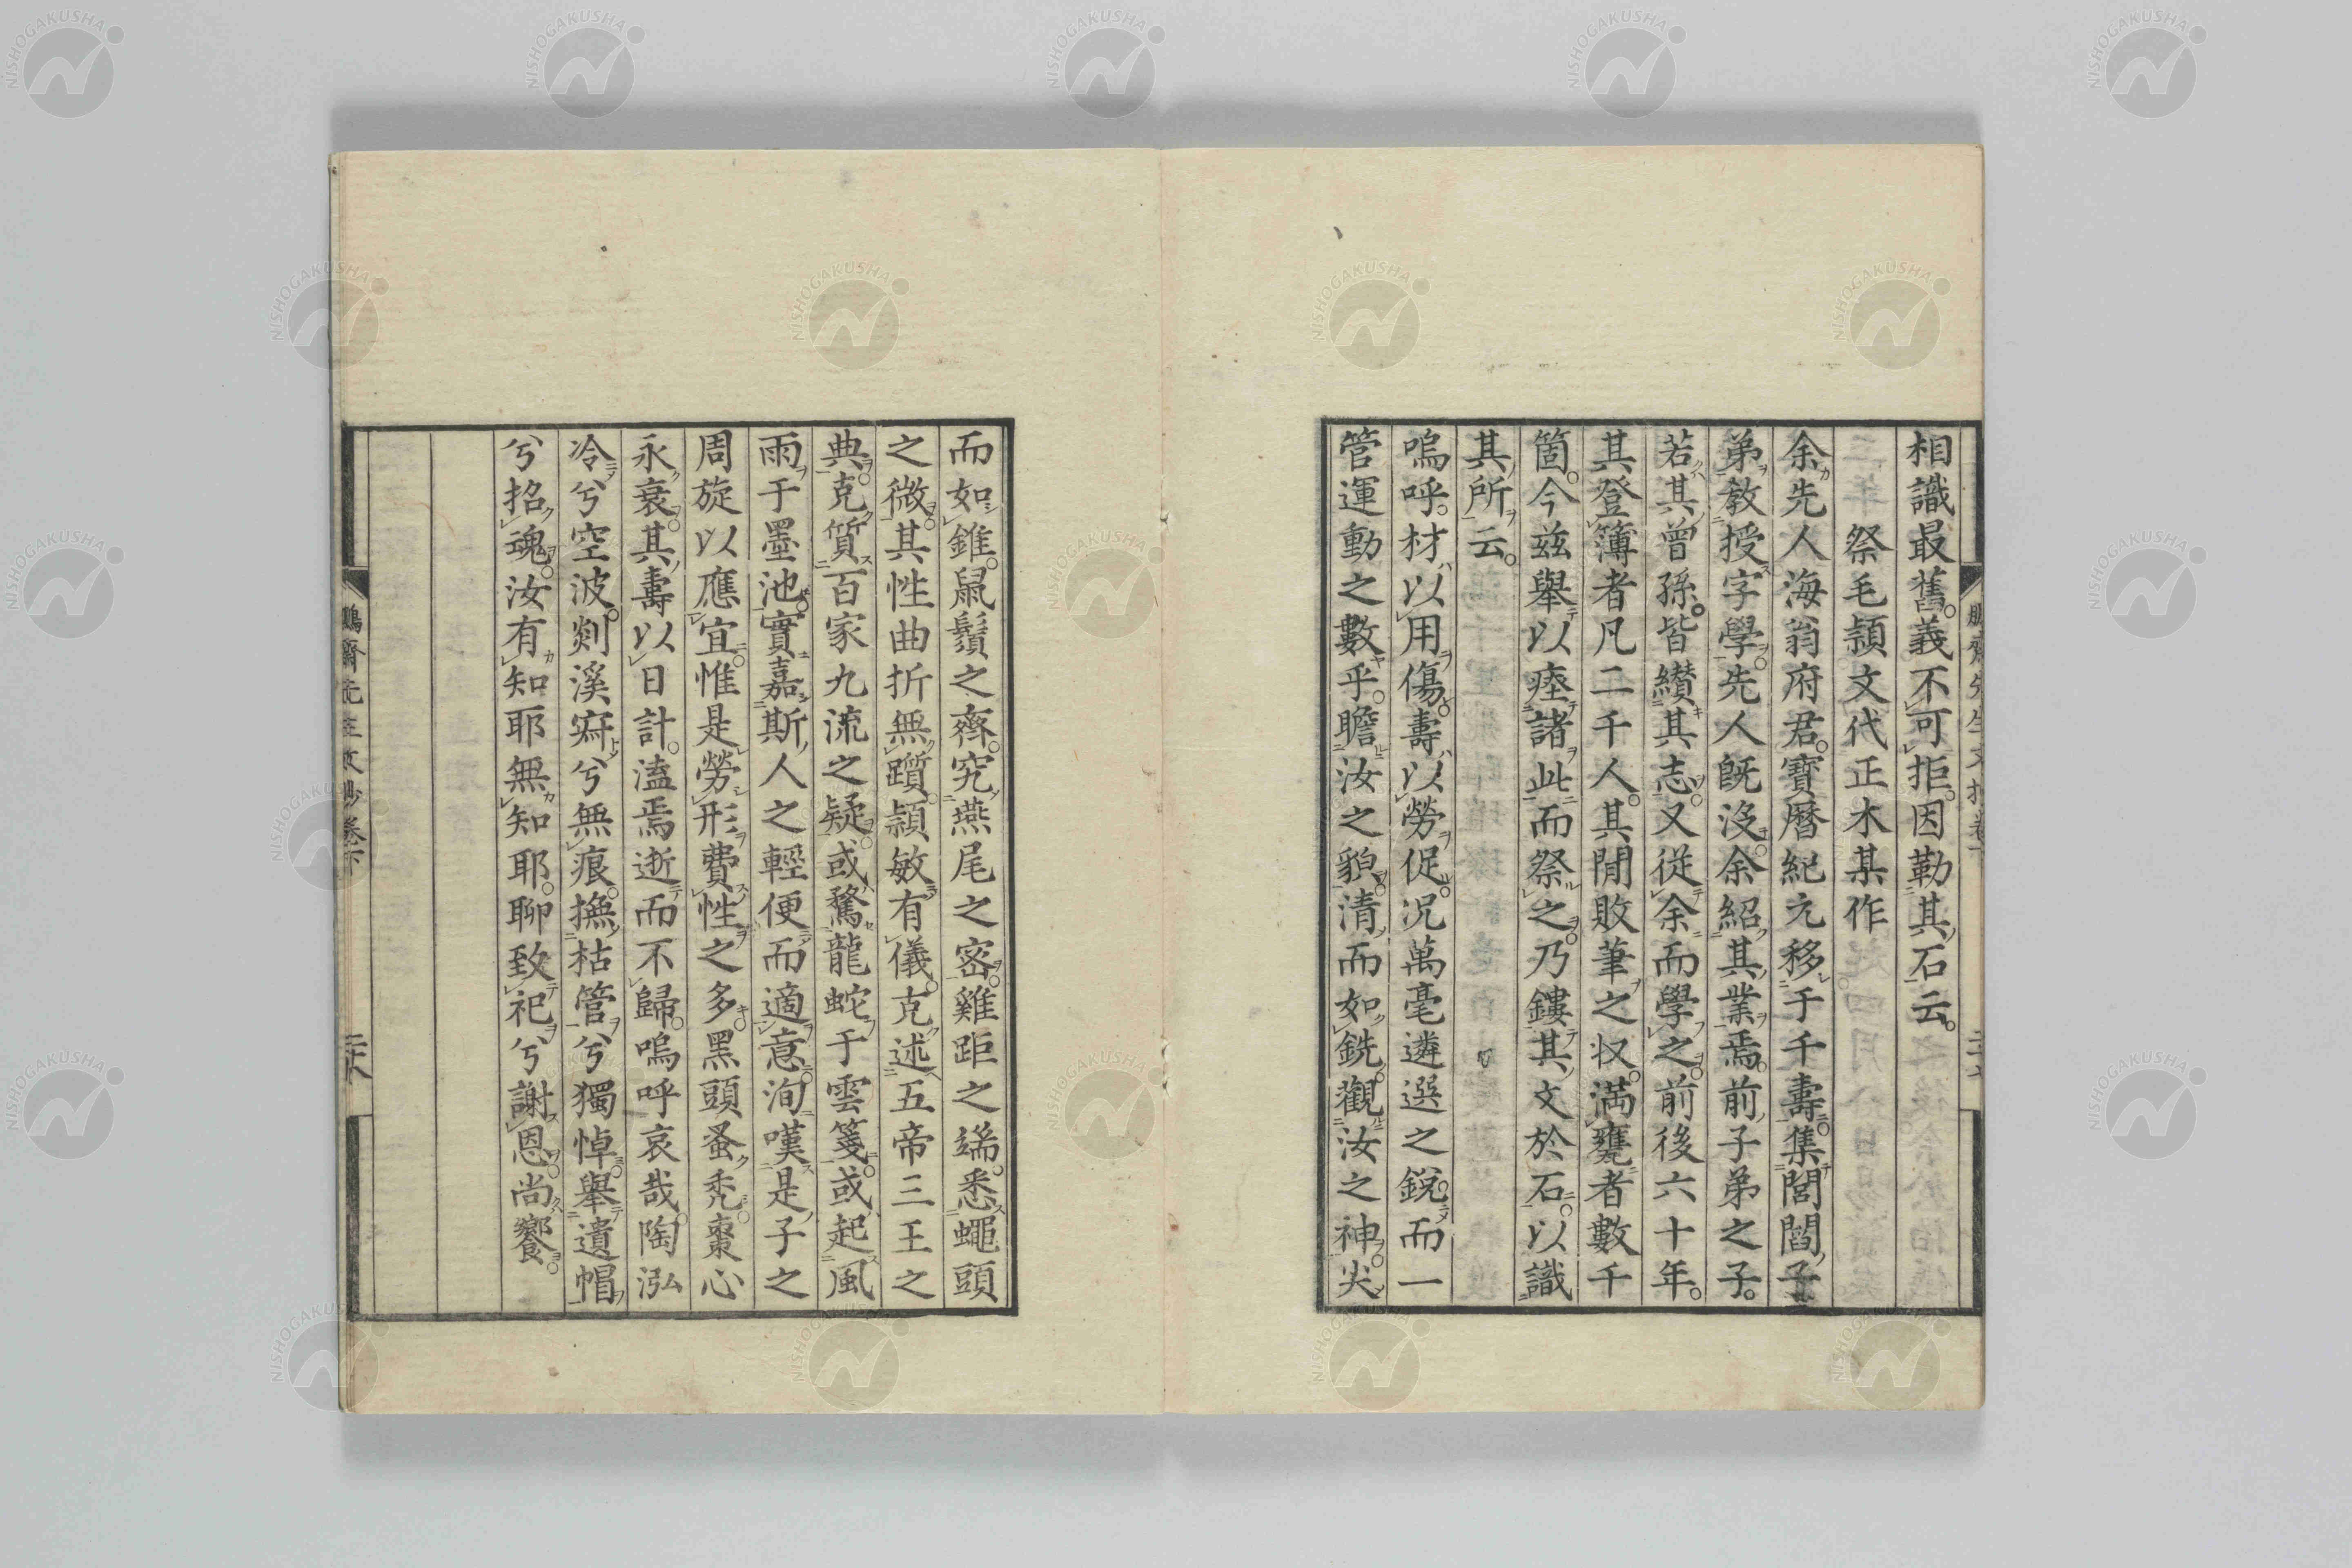 相識最舊。義不可拒。因勒其石云。
祭毛穎文代正木某作
余先人海翁府君。寶曆紀元移于千壽。集閭閻子
弟教授字學。先人既沒。余紹其業焉。前子弟之子。
若其曾孫。皆纘其志。又從余而學之。前後六十年。
其登簿者凡二千人。其間敗筆之収。滿甕者數千
箇。今茲舉以瘞諸此而祭之。乃鏤其文於石。以識
其所云。
嗚呼。材以用傷。壽以勞促。況萬毫遴選之銳。而一
管運動之數乎。瞻汝之貌。清而如銑。觀汝之神。尖
而如錐。鼠鬚之齊。究燕尾之密。雞距之端。悉蠅頭
之微。其性曲折無躓。穎敏有儀。克述五帝三王之
典。克質百家九流之疑。或騖龍蛇于雲箋。或起風
雨于墨池。實嘉斯人之輕便而適意。洵嘆是子之
周旋以應宜。惟是勞形費性之多。黑頭蚤禿。棗心
永衰。其壽以日計。溘焉逝而不歸。嗚呼哀哉。陶泓
冷兮空波。剡溪寂兮無痕。撫枯管兮獨悼。舉遺帽
兮招魂。汝有知耶無知耶。聊致祀兮謝恩。尚饗。
鵬齋先生文抄卷下